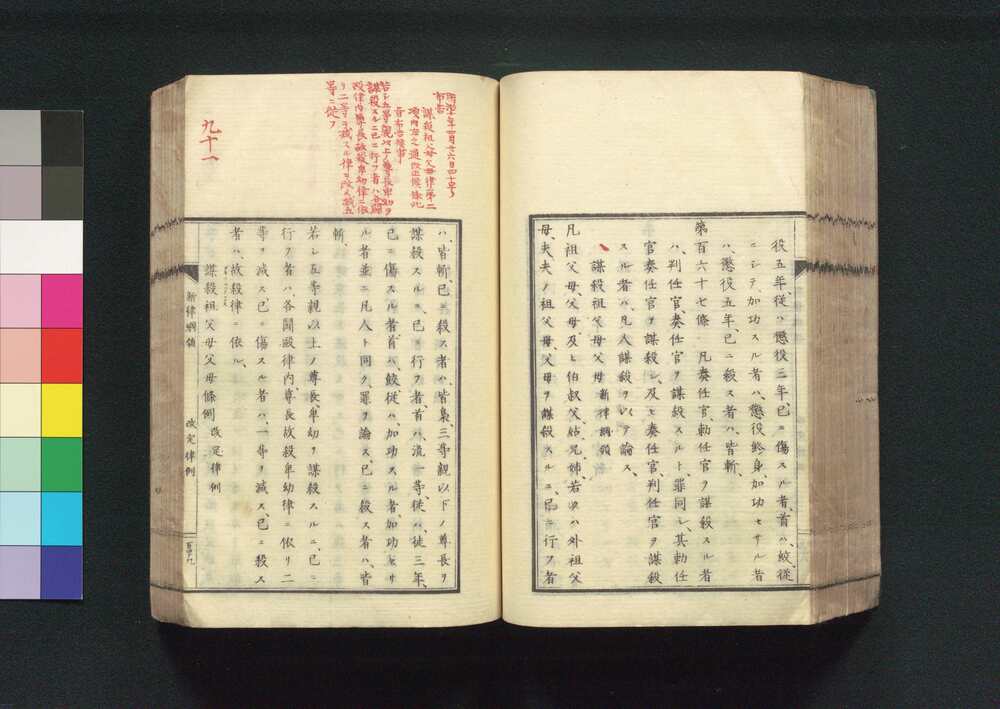 役五年、従ハ懲役三年、已ニ傷スル者、首ハ絞、従
ニシテ、加功スル者ハ、懲役終身、加功セサル者
ハ、懲役五年、已ニ殺ス者ハ、皆斬、
第百六十七條 凡奏任官、勅任官ヲ謀殺スル者
ハ、判任官、奏任官ヲ謀殺スルト、罪同シ、其勅任
官奏任官ヲ謀殺シ、及ヒ奏任官、判任官ヲ謀殺
スル者ハ、凡人謀殺ヲ以テ論ス、
謀殺祖父母父母 新律綱領
凡祖父母、父母、及ヒ伯叔父、姑、兄姉、若クハ外祖父
母、夫、夫ノ祖父母、父母ヲ謀殺スルニ、已ニ行フ者
ハ、皆斬、已ニ殺ス者ハ、皆梟、三等親以下ノ尊長ヲ
謀殺スルニ、已ニ行フ者、首ハ、流一等、従ハ、徒三年、
已ニ傷スル者、首ハ、絞、従ハ、加功スル者、加功セサ
ル者並ニ凡人ト同ク、罪ヲ論ス、已ニ殺ス者ハ、皆
斬、
若シ五等親以上ノ尊長卑幼ヲ謀殺スルニ、已ニ
行フ者ハ、各闘殴律内、尊長故殺卑幼律ニ依リ二
等ヲ減ス、已ニ傷スル者ハ、一等ヲ減ス、已ニ殺ス
者ハ、故殺律ニ依ル、
謀殺祖父母父母條例 改定律例
新律綱領
改定律例
明治十年四月廿六日四十号
布告
謀殺祖父母父母律第二
項内左之通改正候條此
旨布告候事
若シ五等親以上ノ尊長卑幼ヲ
謀殺スルニ已ニ行フ者ハ各闘
殴律内尊長故殺卑幼律ニ依
リ二等ヲ減スル律ヲ改メ減五
等ニ従フ
九十一